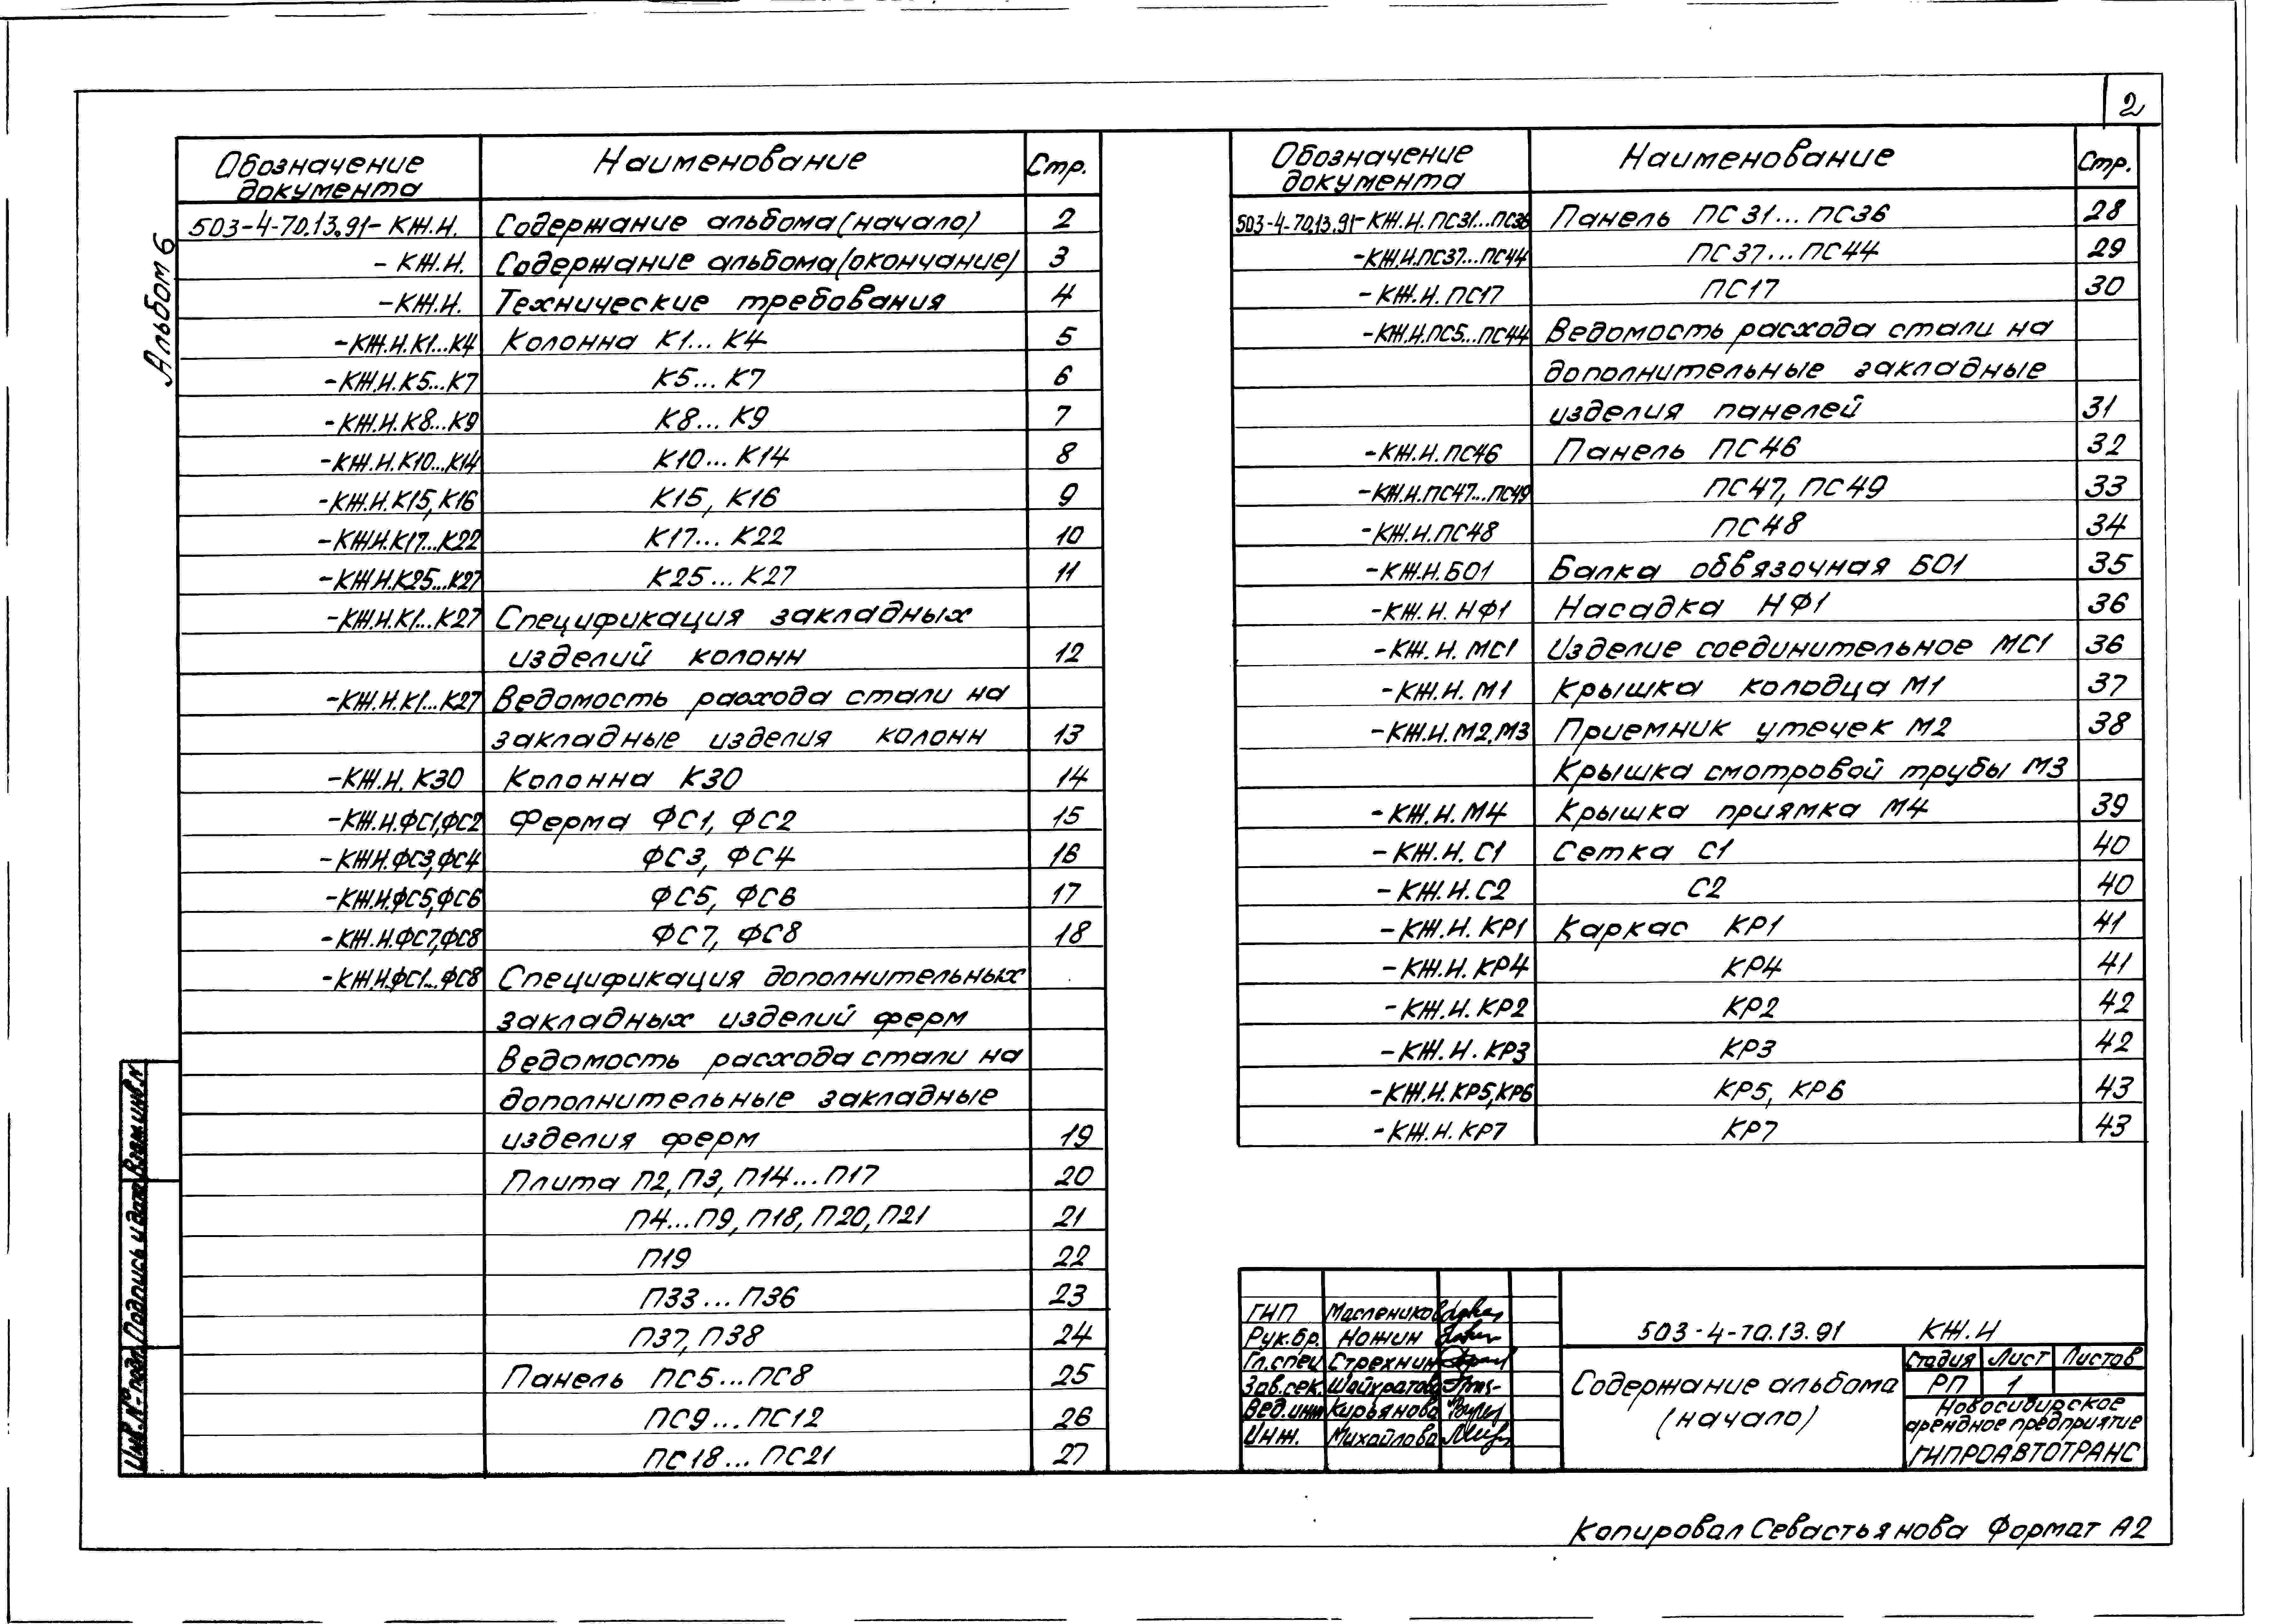 2
Альбом 6
Обозначение документа Наименование Стр.
503-4-70.13.91-КЖ.И. Содержание альбома (начало) 2
-КЖ.И. Содержание альбома (окончание) 3
-КЖ.И. Технические требования 4
-КЖ.И.К1...К4 Колонна К1...К4 5
-КЖ.И.К5...К7 К5...К7 6
-КЖ.И.К8...К9 К8...К9 7
-КЖ.И.К10...К14 К10...К14 8
-КЖ.И.К15,К16 К15, К16 9
-КЖ.И.К17...К22 К17...К22 10
-КЖ.И.К25...К27 К25...К27 11
-КЖ.И.К1...К27 Спецификация закладных
изделий колонн 12
-КЖ.И.К1...К27 Ведомость расхода стали на
закладные изделия колонн 13
-КЖ.И.К30 Колонна К30 14
-КЖ.И.ФС1,ФС2 Ферма ФС1, ФС2 15
-КЖ.И.ФС3,ФС4 ФС3, ФС4 16
-КЖ.И.ФС5,ФС6 ФС5, ФС6 17
-КЖ.И.ФС7,ФС8 ФС7, ФС8 18
-КЖ.И.ФС1...ФС8 Спецификация дополнительных
закладных изделий ферм
Ведомость расхода стали на
дополнительные закладные
изделия ферм 19
Плита П2, П3, П14...П17 20
П4...П9, П18, П20, П21 21
П19 22
П33...П36 23
П37, П38 24
Панель ПС5...ПС8 25
ПС9...ПС12 26
ПС18...ПС21 27
Обозначение документа Наименование Стр.
503-4-70.13.91-КЖ.И.ПС31...ПС36 Панель ПС31...ПС36 28
-КЖ.И.ПС37...ПС44 ПС37...ПС44 29
-КЖ.И.ПС17 ПС17 30
-КЖ.И.ПС5...ПС44 Ведомость расхода стали на
дополнительные закладные
изделия панелей 31
-КЖ.И.ПС46 Панель ПС46 32
-КЖ.И.ПС47...ПС49 ПС47, ПС49 33
-КЖ.И.ПС48 ПС48 34
-КЖ.И.БО1 Балка обвязочная БО1 35
-КЖ.И.НФ1 Насадка НФ1 36
-КЖ.И.МС1 Изделие соединительное МС1 36
-КЖ.И.М1 Крышка колодца М1 37
-КЖ.И.М2,М3 Приемник утечек М2 38
Крышка смотровой трубы М3
-КЖ.И.М4 Крышка приямка М4 39
-КЖ.И.С1 Сетка С1 40
-КЖ.И.С2 С2 40
-КЖ.И.КР1 Каркас КР1 41
-КЖ.И.КР4 КР4 41
-КЖ.И.КР2 КР2 42
-КЖ.И.КР3 КР3 42
-КЖ.И.КР5,КР6 КР5, КР6 43
-КЖ.И.КР7 КР7 43
Взам.инв.N
Подпись и дата
Инв.№ подл.
ГИП Маслеников
Рук.бр. Ножин
Гл.спец Стрехнин
Зав.сек. Шайхратова
Вед.инж Кирьянова
Инж. Михайлова
503-4-70.13.91 КЖ.И
Содержание альбома
(начало)
Стадия Лист Листов
РП 1
Новосибирское
арендное предприятие
ГИПРОАВТОТРАНС
Копировал Севастьянова Формат А2